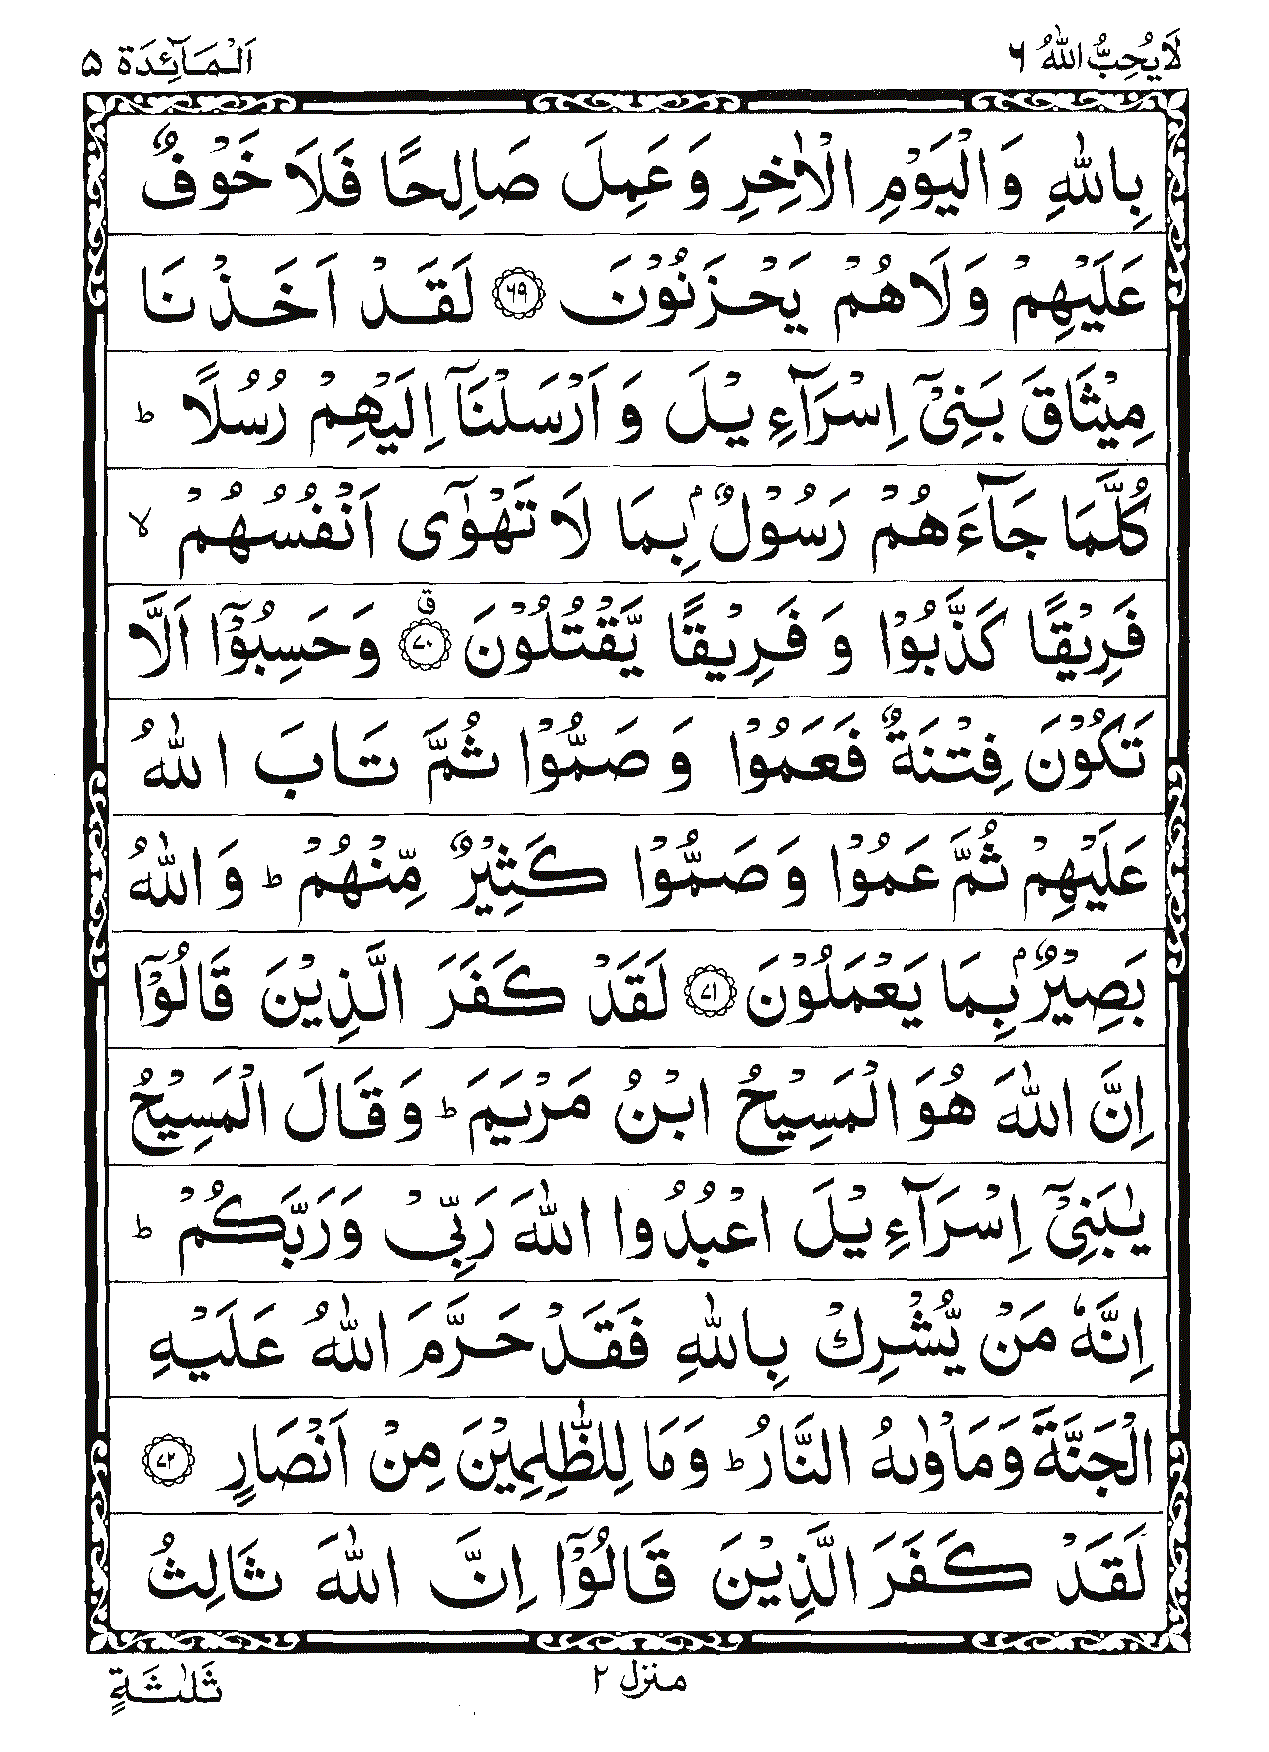 لَا يُحِبُّ اللهُ ٦
اَلْمَآئِدَة ٥
بِاللّٰهِ وَالْيَوْمِ الْاٰخِرِ وَعَمِلَ صَالِحًا فَلَا خَوْفٌ
عَلَيْهِمْ وَلَا هُمْ يَحْزَنُوْنَ ﴿٦٩﴾ لَقَدْ اَخَذْنَا
مِيْثَاقَ بَنِيْۤ اِسْرَآءِيْلَ وَ اَرْسَلْنَاۤ اِلَيْهِمْ رُسُلًا ؕ
كُلَّمَا جَآءَهُمْ رَسُوْلٌۢ بِمَا لَا تَهْوٰۤى اَنْفُسُهُمْ ۙ
فَرِيْقًا كَذَّبُوْا وَ فَرِيْقًا يَّقْتُلُوْنَ ﴿٧٠﴾ ق وَحَسِبُوْۤا اَلَّا
تَكُوْنَ فِتْنَةٌ فَعَمُوْا وَ صَمُّوْا ثُمَّ تَابَ اللّٰهُ
عَلَيْهِمْ ثُمَّ عَمُوْا وَ صَمُّوْا كَثِيْرٌ مِّنْهُمْ ؕ وَ اللّٰهُ
بَصِيْرٌۢ بِمَا يَعْمَلُوْنَ ﴿٧١﴾ لَقَدْ كَفَرَ الَّذِيْنَ قَالُوْۤا
اِنَّ اللّٰهَ هُوَ الْمَسِيْحُ ابْنُ مَرْيَمَ ؕ وَ قَالَ الْمَسِيْحُ
يٰبَنِيْۤ اِسْرَآءِيْلَ اعْبُدُوا اللّٰهَ رَبِّيْ وَرَبَّكُمْ ؕ
اِنَّهٗ مَنْ يُّشْرِكْ بِاللّٰهِ فَقَدْ حَرَّمَ اللّٰهُ عَلَيْهِ
الْجَنَّةَ وَمَاْوٰىهُ النَّارُ ؕ وَمَا لِلظّٰلِمِيْنَ مِنْ اَنْصَارٍ ﴿٧٢﴾
لَقَدْ كَفَرَ الَّذِيْنَ قَالُوْۤا اِنَّ اللّٰهَ ثَالِثُ
منزل ٢
ثَلٰثَةٍ